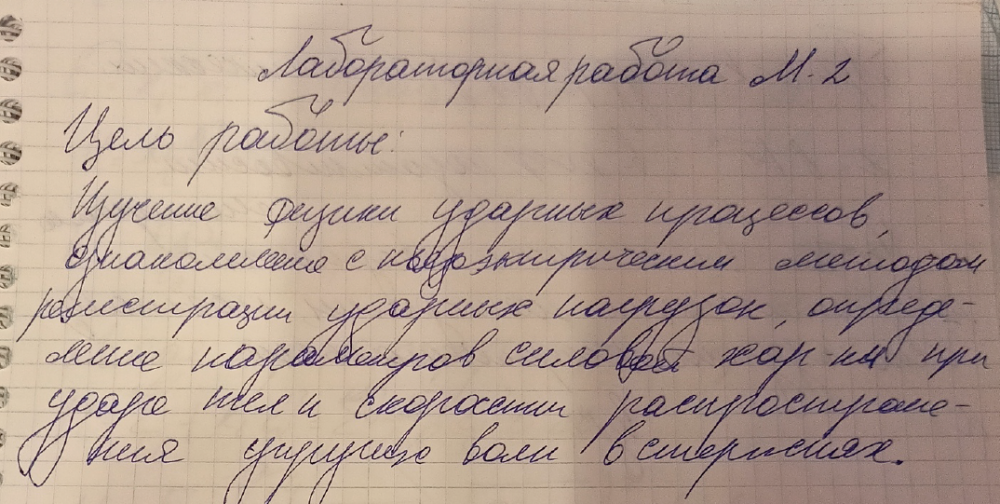 Лабораторная работа М. 2
Цель работы:
Изучение физики ударных процессов,
ознакомление с пьезоэлектрическим методом
регистрации ударных нагрузок, опреде-
ление параметров силовой хар-ки при
ударе тел и скорости распростране-
ния упругих волн в стержнях.